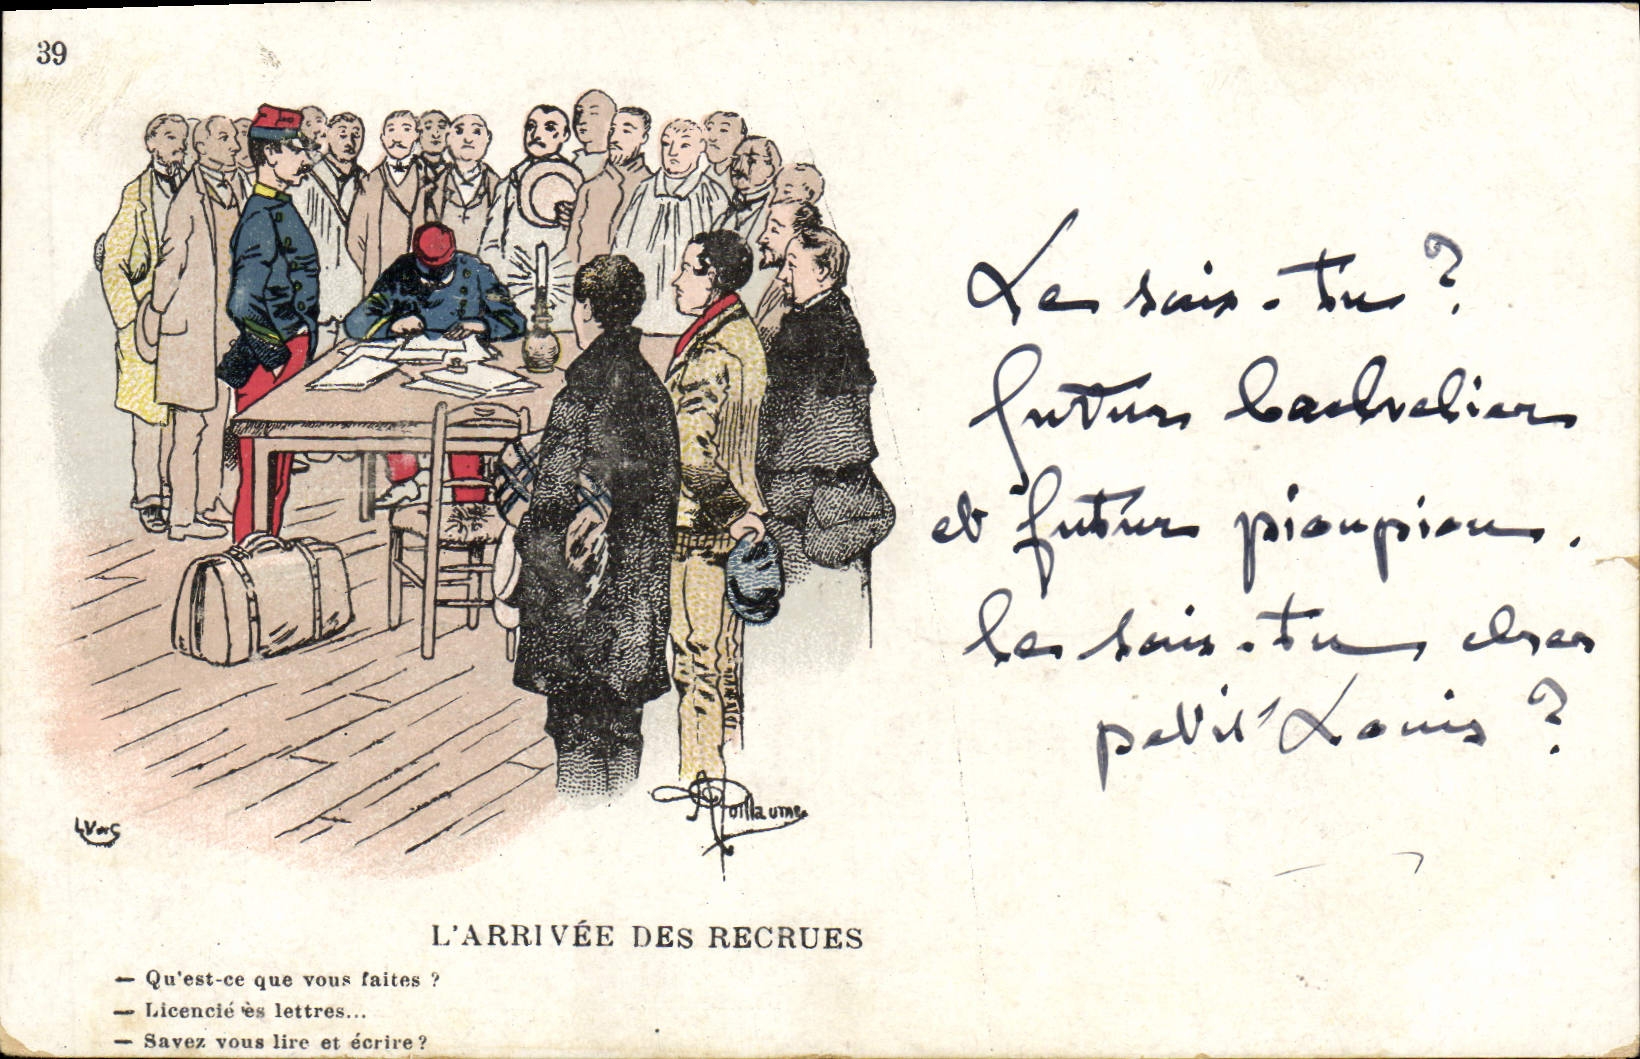 39
Le sais-tu ?
futur bachelier
et futur pioupiou.
le sais-tu cher
petit Louis ?
L.VorG
A. Guillaume
L'ARRIVÉE DES RECRUES
— Qu'est-ce que vous faites ?
— Licencié ès lettres...
— Savez vous lire et écrire ?